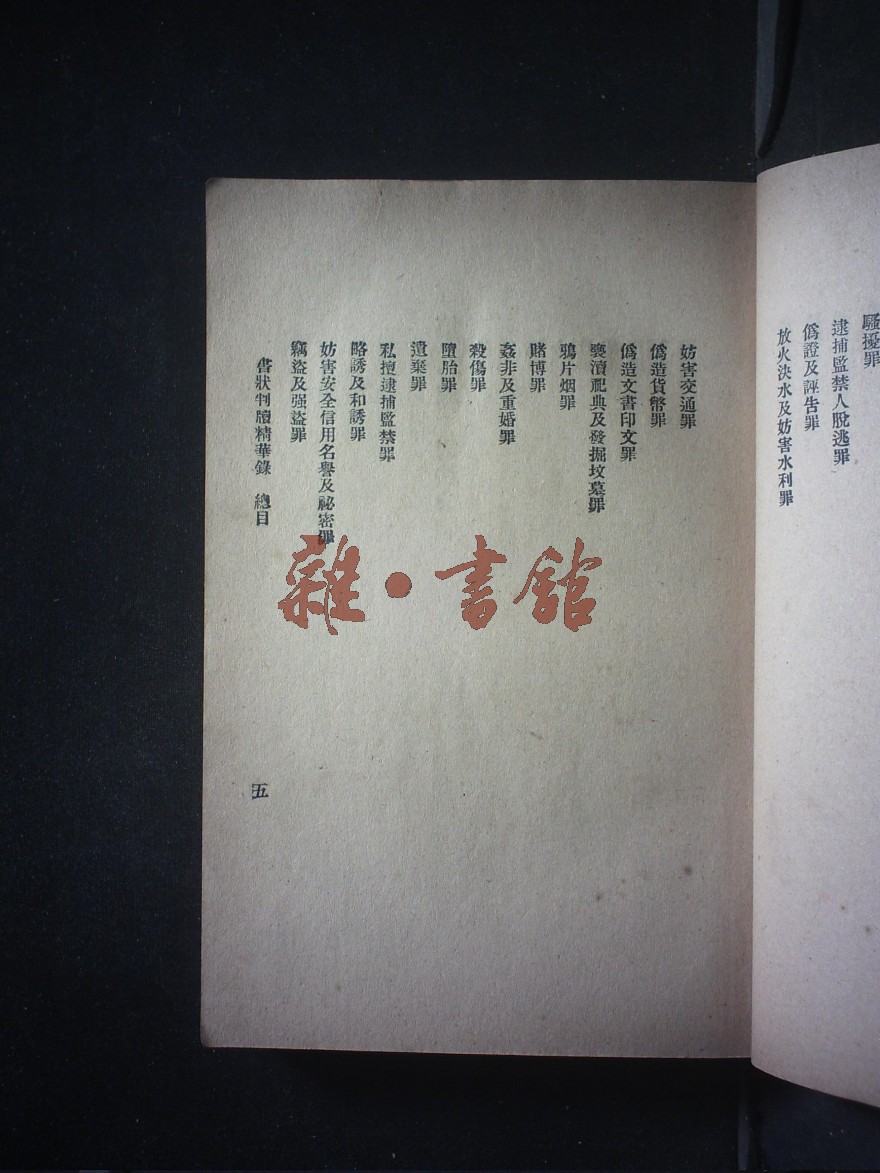 騷擾罪
逮捕監禁人脫逃罪
僞證及誣告罪
放火決水及妨害水利罪
妨害交通罪
僞造貨幣罪
僞造文書印文罪
褻瀆祀典及發掘坟墓罪
鴉片烟罪
賭博罪
姦非及重婚罪
殺傷罪
墮胎罪
遺棄罪
私擅逮捕監禁罪
略誘及和誘罪
妨害安全信用名譽及祕密罪
竊盜及强盜罪
書狀判牘精華錄 總目
五
雜·書館